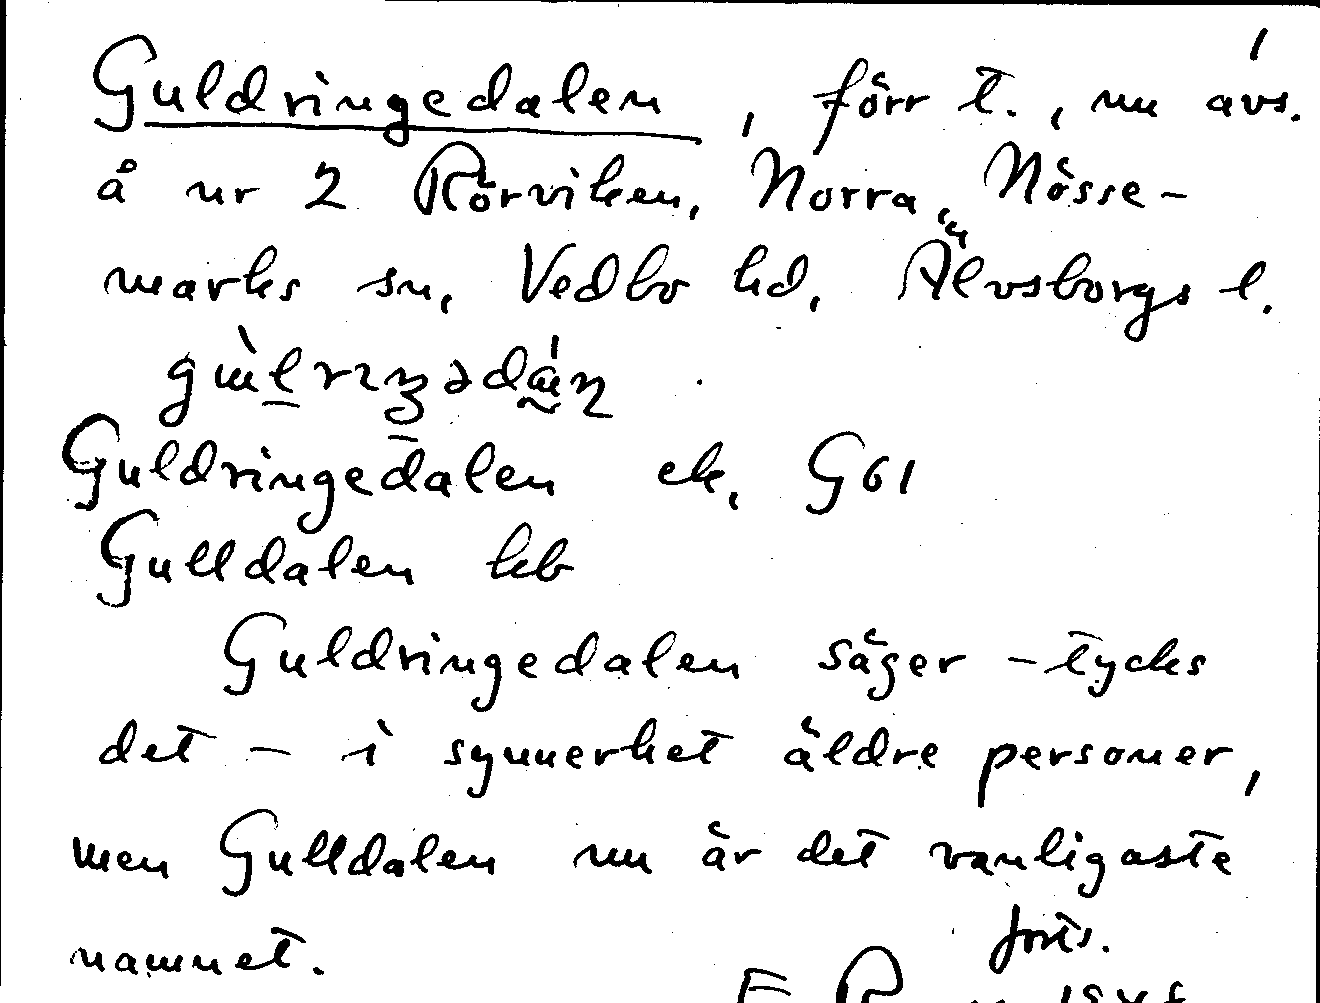 1
Guldringedalen, förr t., nu avs.
å nr 2 Rörviken, Norra, Nösse-
marks sn, Vedbo hd, Älvsborgs l.
Guldringedalen ek, G61
Gulldalen kb
Guldringedalen säger – tycks
det – i synnerhet äldre personer,
men Gulldalen nu är det vanligaste
namnet.
forts.